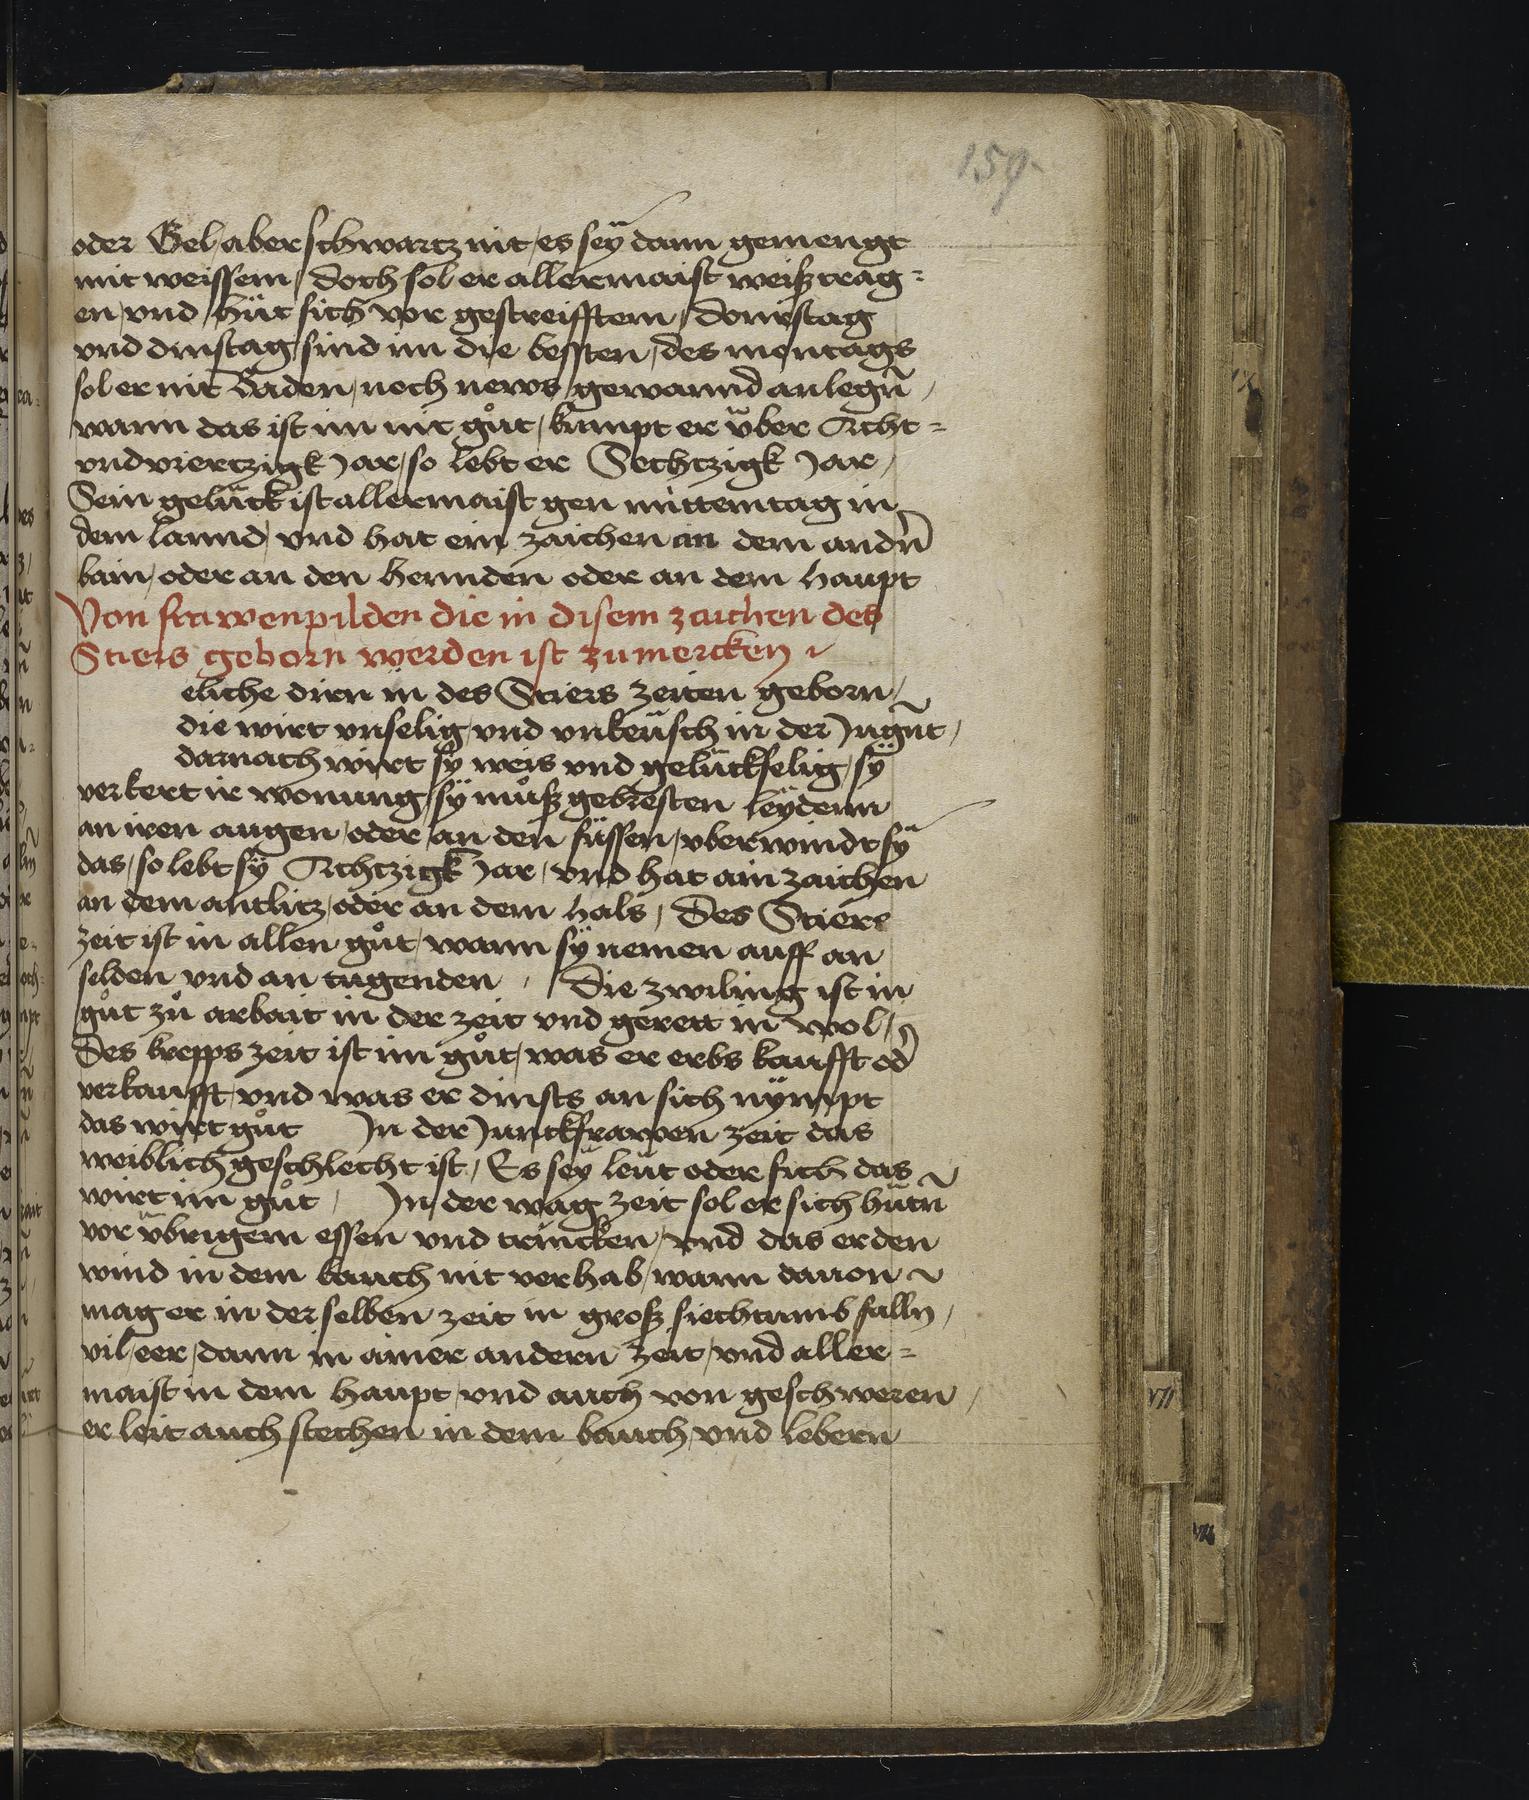 159
oder Gel / aber schwartz nit / es seÿ dann gemengt
mit weissem / doch sol er allermaist weiß trag=
en / vnd hüt sich vor gestreifftem / donrstag
vnd dinstag sind im die bessten / des montags
sol er nit Baden / noch news gewannd anlegn̄ /
wann das ist im nit gůt / kumpt er über Acht=
vnd viertzigk Jar / so lebt er Sechtzigk Jar /
Sein gelück ist allermaist gen mittemtag in
dem lannd / vnd hat ein zaichen an dem andn̄
bain / oder an den hennden oder an dem haupt
Von frawenpilden die in disem zaichen des
Stiers geborn werden ist zumercken
eliche dirn in des Stiers zeiten geborn /
die wirt vnselig vnd vnkeüsch in der Jugūt /
darnach wirt sÿ weis vnd gelückselig / sÿ
verkert ir wonung / sÿ můß gebresten leÿdenn
an iren augen / oder an den füssen / vberwindt sÿ
das / so lebt sÿ Achtzigk Jar / vnd hat ain zaichen
an dem antlitz / oder an dem hals / Des Stiers
zeit ist in allen gůt / wann sÿ nemen auff an
selden vnd an tugenden / Die zwiling ist in
gůt zů arbait in der zeit vnd gerett in wol /
Des krepps zeit ist im gůt / was er erbs kaufft od̄
verkaufft / vnd was er dinsts an sich nÿmpt
das wirt gůt In der Junckfrawen zeit das
weiblich geschlecht ist / Es seÿ leüt oder fich das
wirt im gůt / In der wag zeit sol er sich hütn̄
vor übrigem essen vnd trincken / vnd das er den
wind in dem bauch nit verhab / wann dauon
mag er in der selben zeit in groß siechtumb falln /
vil eer / dann in ainer andern zeit / vnd aller=
maist in dem haupt / vnd auch von geschweren /
er leit auch stechen in dem bauch / vnd lebern
VII